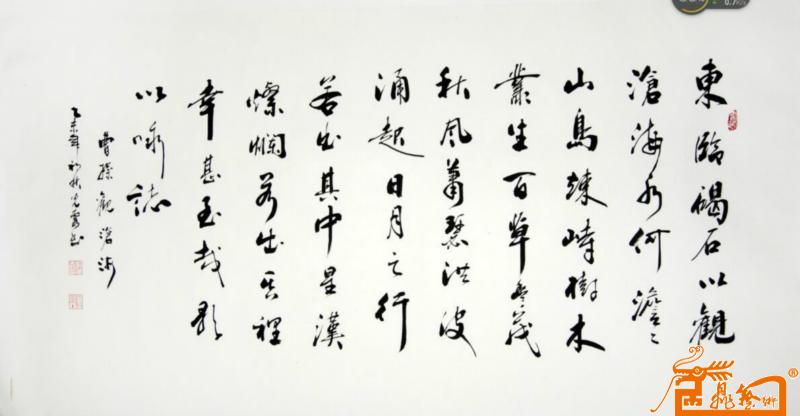 東臨碣石以觀
滄海水何澹〻
山島竦峙樹木
叢生百草豐茂
秋風蕭瑟洪波
涌起日月之行
若出其中星漢
燦爛若出其裡
幸甚至哉歌
以咏誌
曹操觀滄海
乙未年初秋光露书